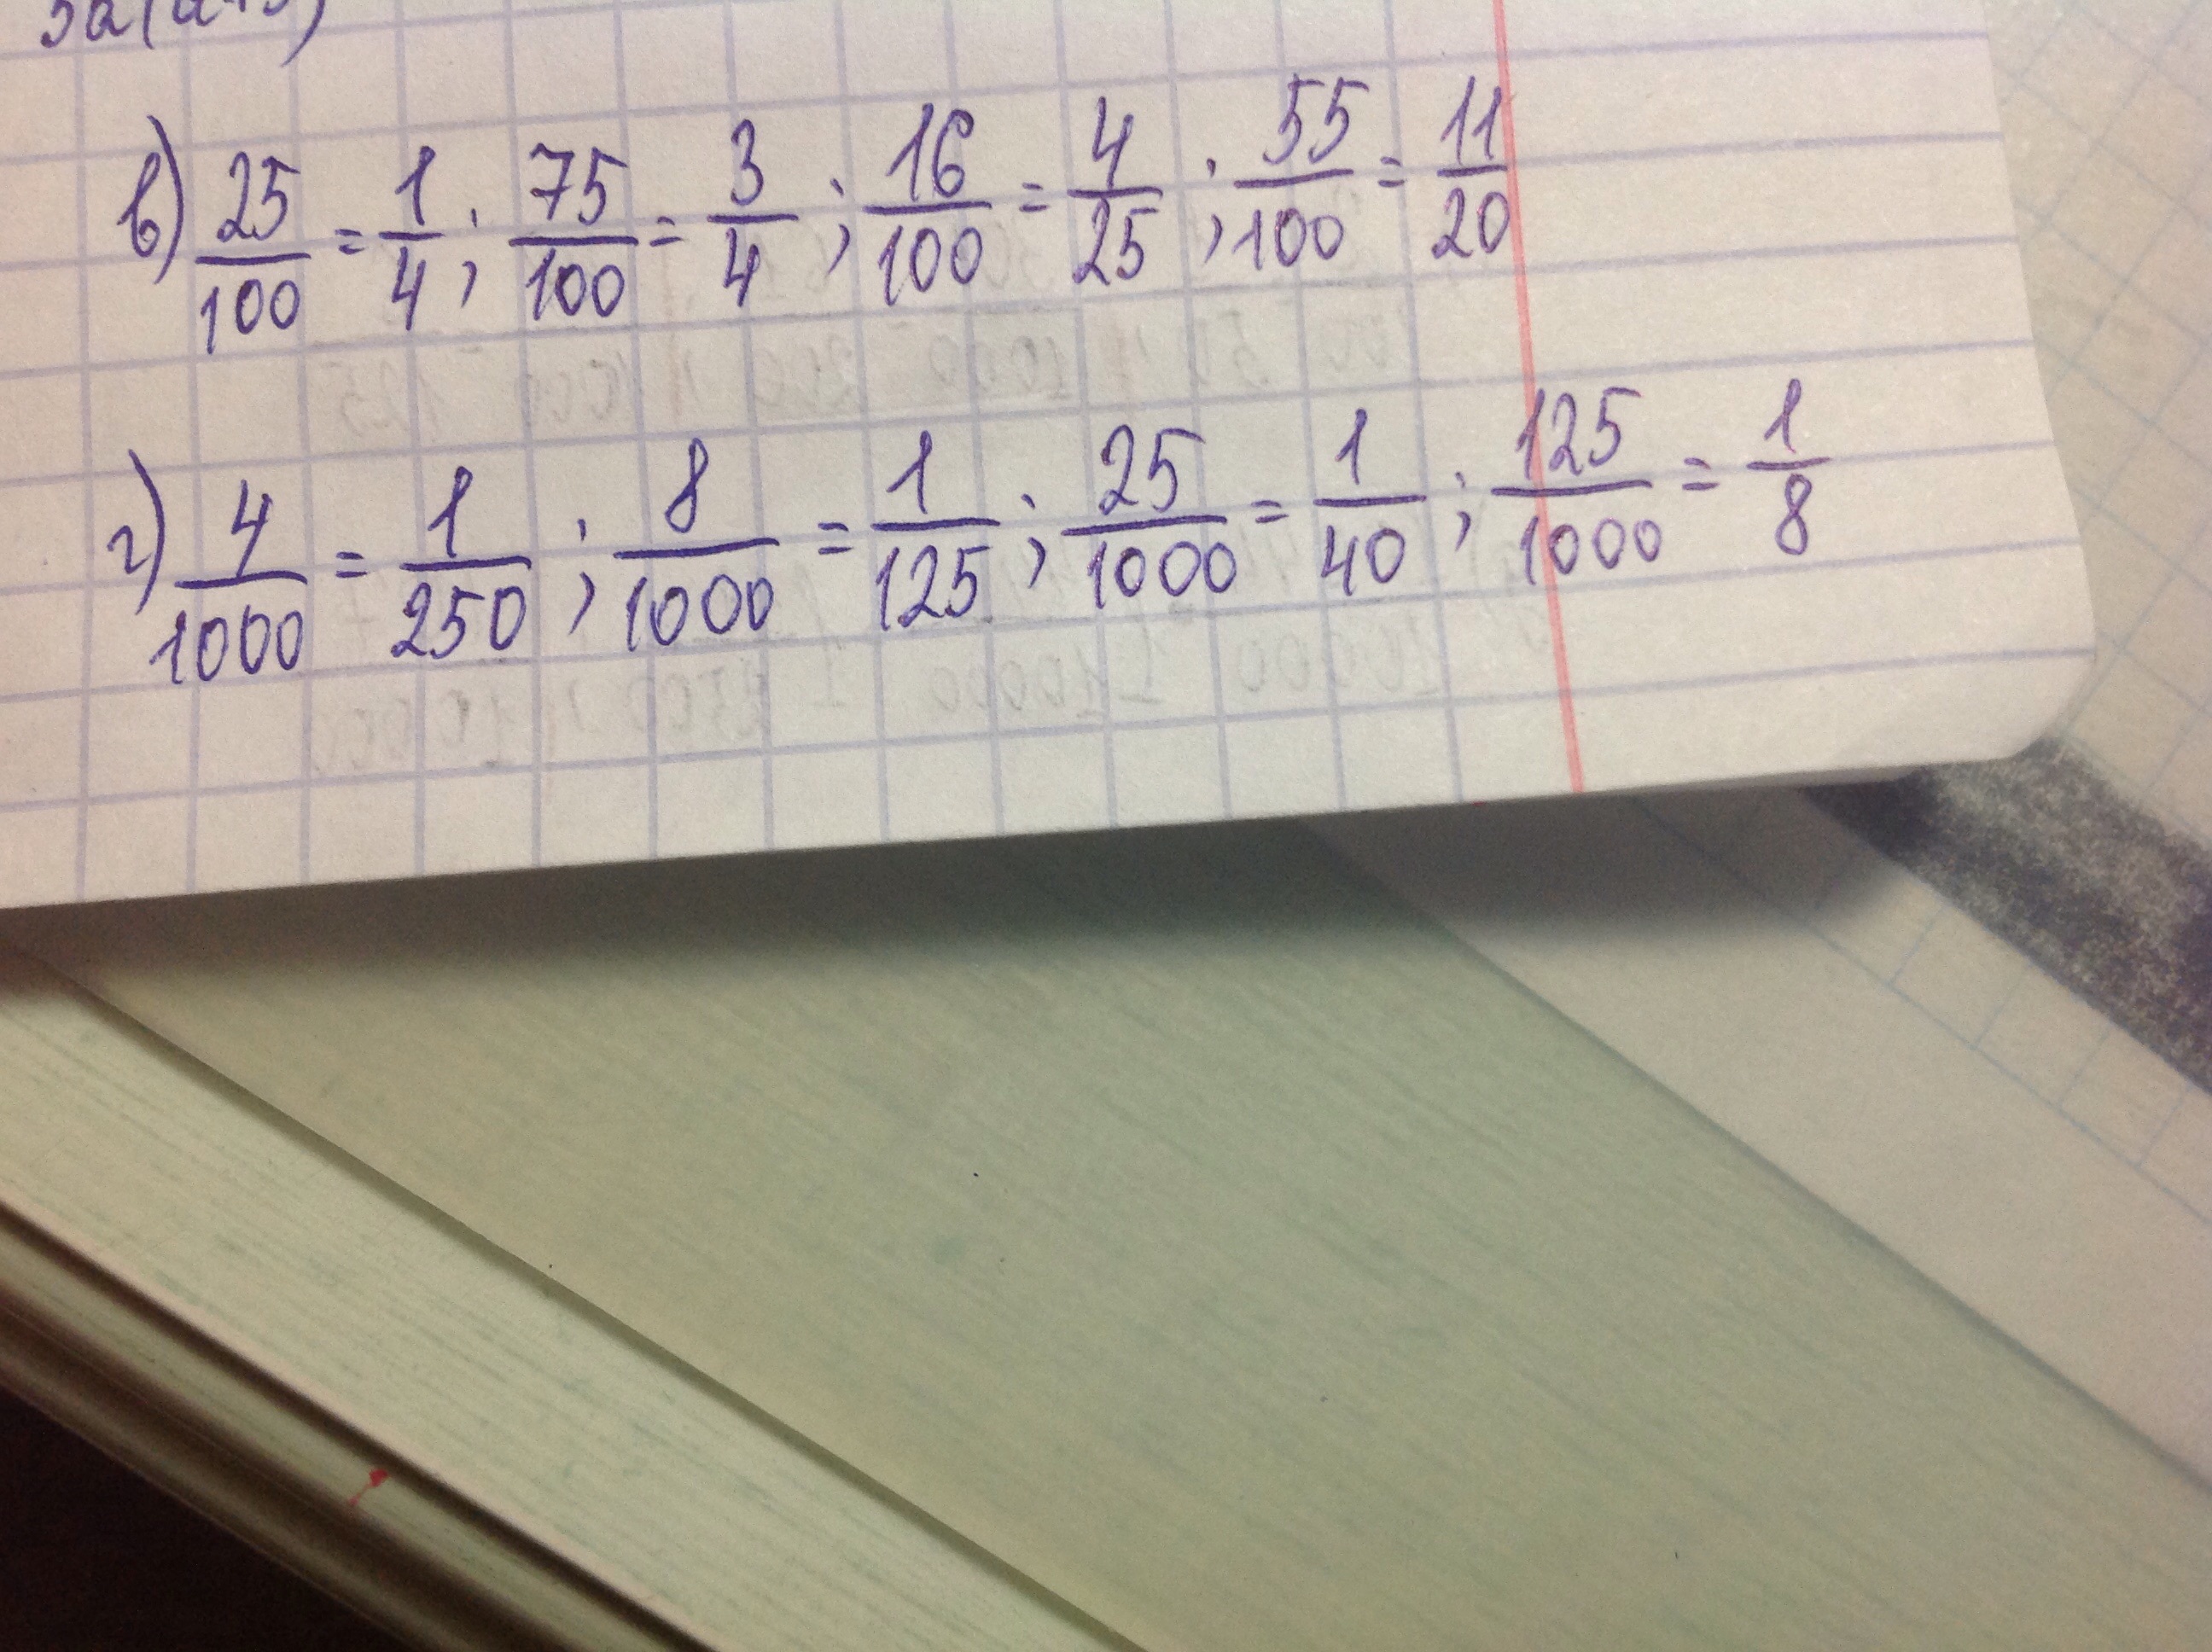 в) 25/100 = 1/4; 75/100 = 3/4; 16/100 = 4/25; 55/100 = 11/20
г) 4/1000 = 1/250; 8/1000 = 1/125; 25/1000 = 1/40; 125/1000 = 1/8